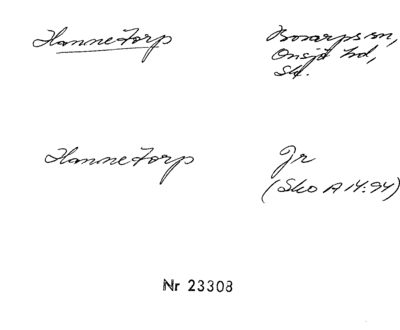 Hannetorp
Bosarps sn,
Onsjö hd,
Sk.
Hannetorp
Jr
(Sko A 14:94)
Nr 23308